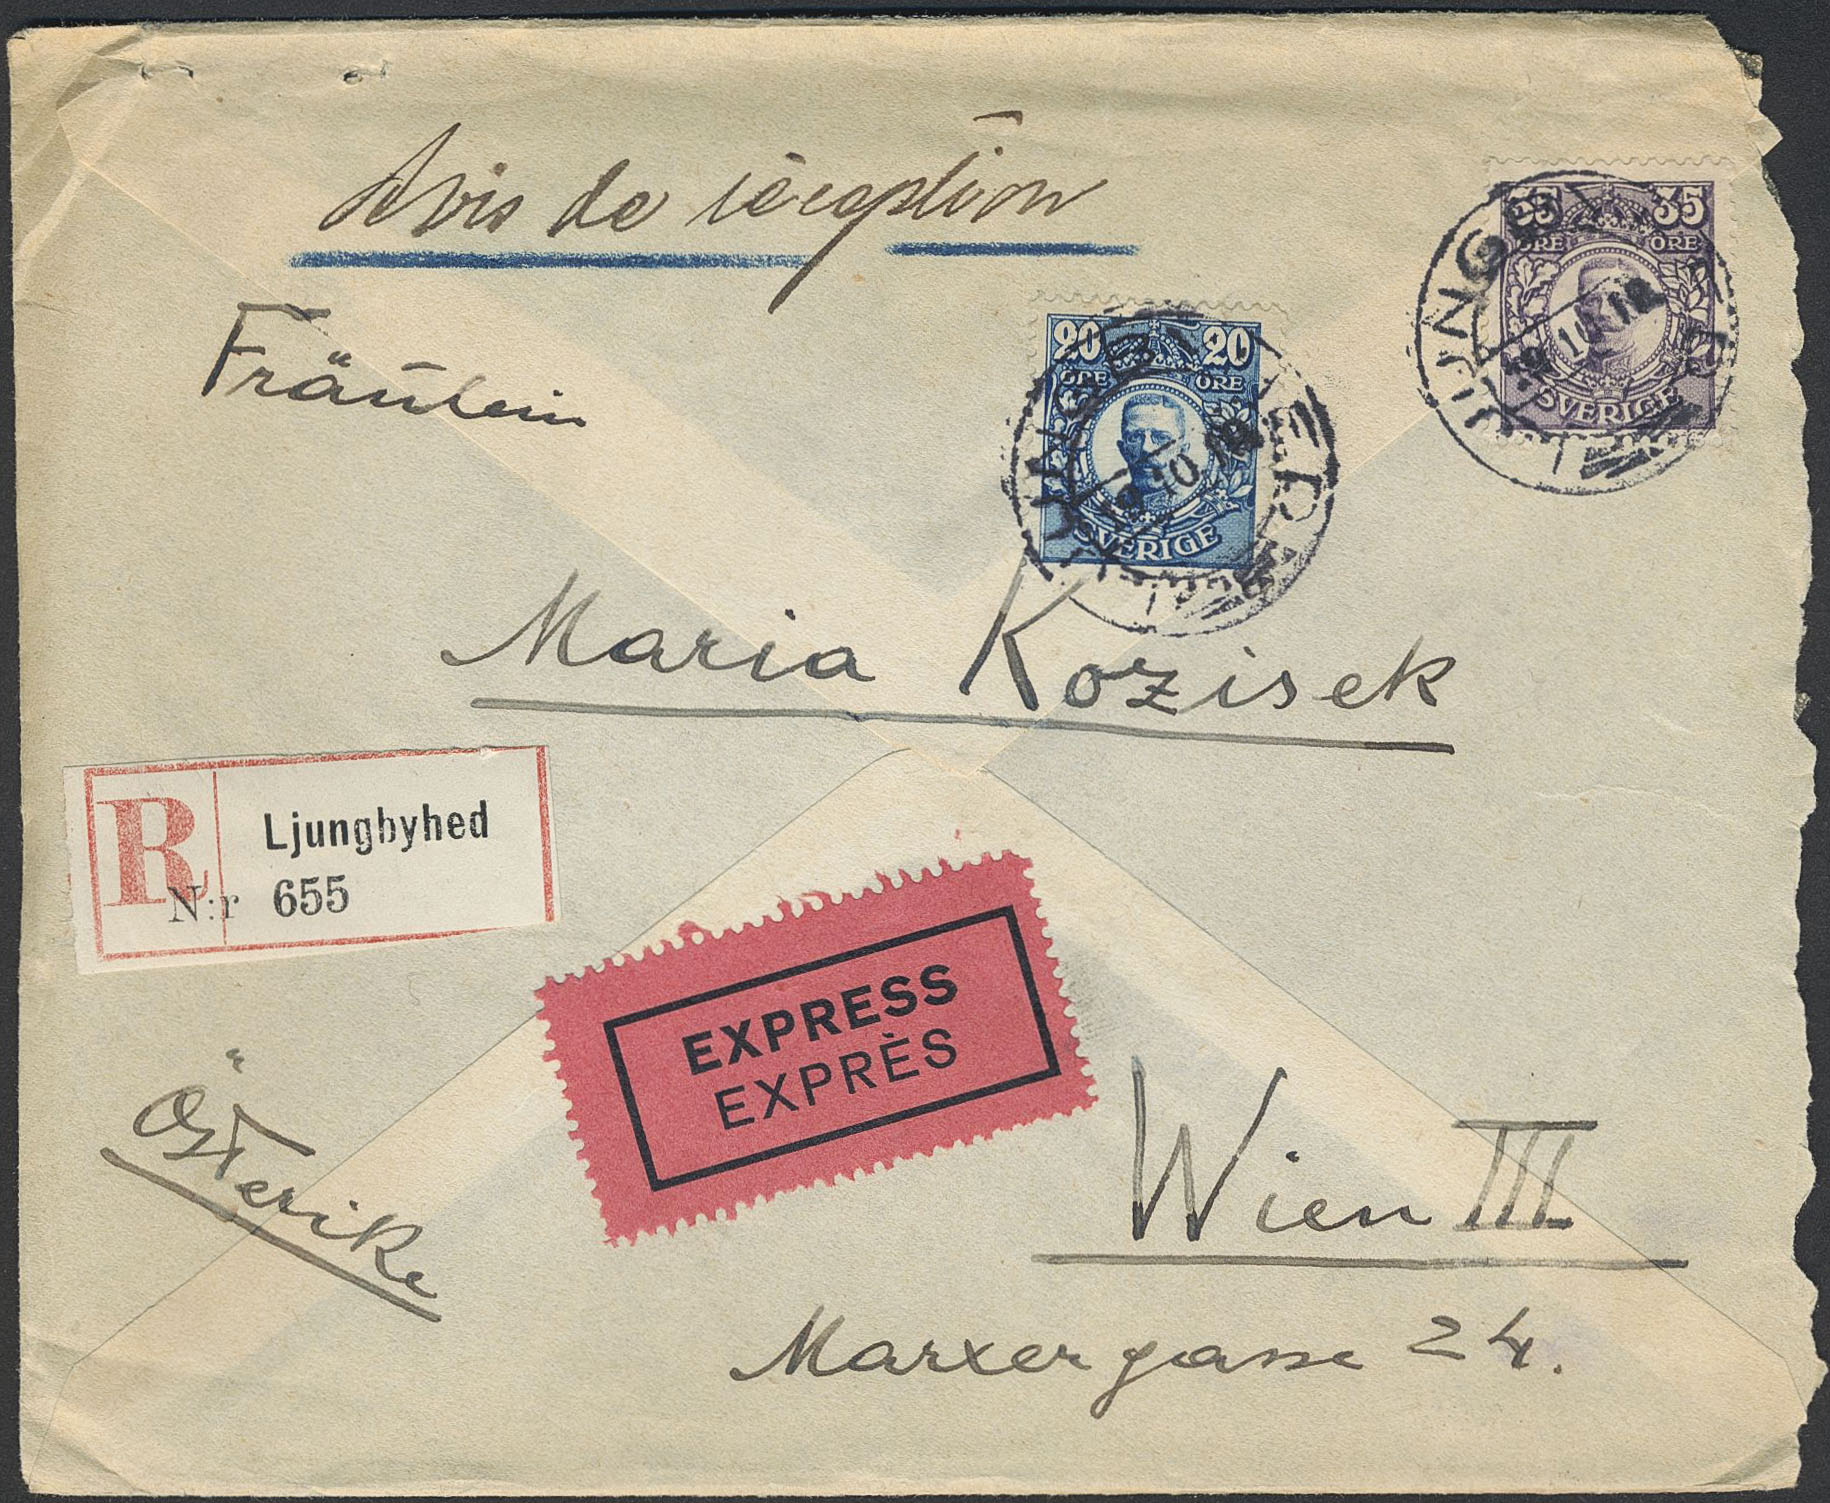 Avis de réception
35 35
ÖRE ÖRE
SVERIGE
Fräulein
20 20
ÖRE ÖRE
SVERIGE
LJUNGBYHED
Maria Kozisek
R
Ljungbyhed
N:r 655
EXPRESS
EXPRÈS
Österike
Wien III
Marxergasse 24.